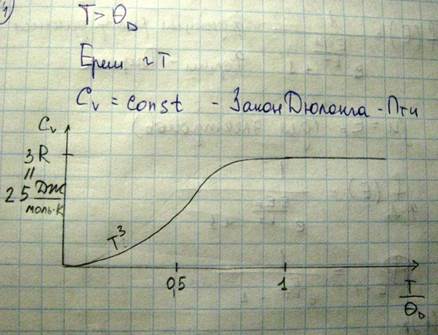 4)
T > θ_D
E реш ~ T
C_v = const - Закон Дюлонга-Пти
C_v
3R
=
25 Дж/моль·К
T³
0,5
1
T/θ_D